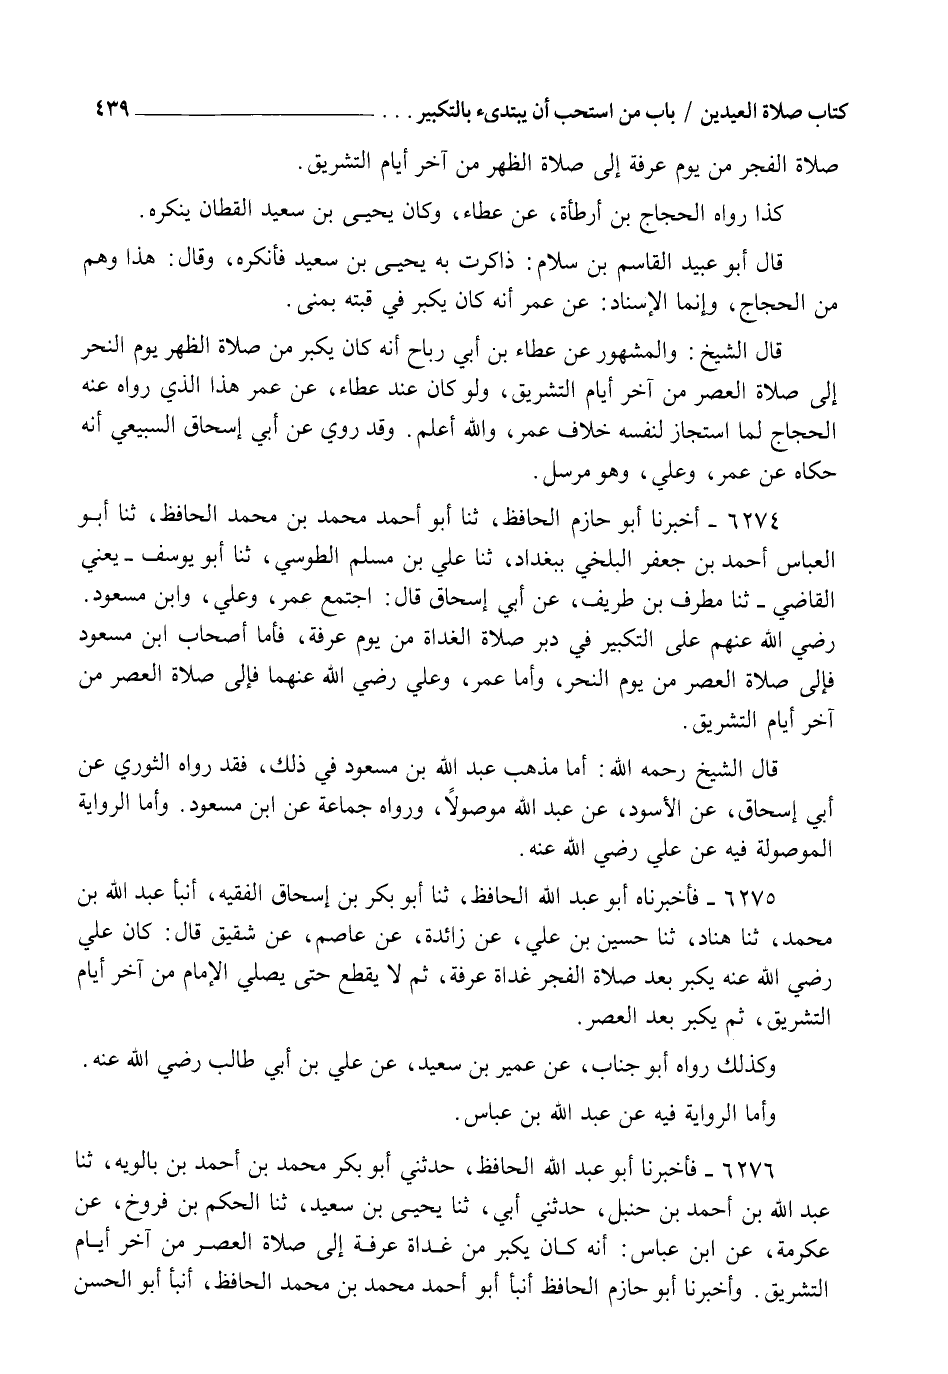 كتاب صلاة العيدين / باب من استحب أن يبتدىء بالتكبير . . . ٤٣٩
صلاة الفجر من يوم عرفة إلى صلاة الظهر من آخر أيام التشريق.
كذا رواه الحجاج بن أرطأة، عن عطاء، وكان يحيى بن سعيد القطان ينكره.
قال أبو عبيد القاسم بن سلام: ذاكرت به يحيى بن سعيد فأنكره، وقال: هذا وهم
من الحجاج، وإنما الإسناد: عن عمر أنه كان يكبر في قبته بمنى.
قال الشيخ: والمشهور عن عطاء بن أبي رباح أنه كان يكبر من صلاة الظهر يوم النحر
إلى صلاة العصر من آخر أيام التشريق، ولو كان عند عطاء، عن عمر هذا الذي رواه عنه
الحجاج لما استجاز لنفسه خلاف عمر، والله أعلم. وقد روي عن أبي إسحاق السبيعي أنه
حكاه عن عمر، وعلي، وهو مرسل.
٦٢٧٤ ـ أخبرنا أبو حازم الحافظ، ثنا أبو أحمد محمد بن محمد الحافظ، ثنا أبو
العباس أحمد بن جعفر البلخي ببغداد، ثنا علي بن مسلم الطوسي، ثنا أبو يوسف ـ يعني
القاضي ـ ثنا مطرف بن طريف، عن أبي إسحاق قال: اجتمع عمر، وعلي، وابن مسعود.
رضي الله عنهم على التكبير في دبر صلاة الغداة من يوم عرفة، فأما أصحاب ابن مسعود
فإلى صلاة العصر من يوم النحر، وأما عمر، وعلي رضي الله عنهما فإلى صلاة العصر من
آخر أيام التشريق.
قال الشيخ رحمه الله: أما مذهب عبد الله بن مسعود في ذلك، فقد رواه الثوري عن
أبي إسحاق، عن الأسود، عن عبد الله موصولاً، ورواه جماعة عن ابن مسعود. وأما الرواية
الموصولة فيه عن علي رضي الله عنه.
٦٢٧٥ ـ فأخبرناه أبو عبد الله الحافظ، ثنا أبو بكر بن إسحاق الفقيه، أنبأ عبد الله بن
محمد، ثنا هناد، ثنا حسين بن علي، عن زائدة، عن عاصم، عن شقيق قال: كان علي
رضي الله عنه يكبر بعد صلاة الفجر غداة عرفة، ثم لا يقطع حتى يصلي الإمام من آخر أيام
التشريق، ثم يكبر بعد العصر.
وكذلك رواه أبو جناب، عن عمير بن سعيد، عن علي بن أبي طالب رضي الله عنه.
وأما الرواية فيه عن عبد الله بن عباس.
٦٢٧٦ ـ فأخبرنا أبو عبد الله الحافظ، حدثني أبو بكر محمد بن أحمد بن بالويه، ثنا
عبد الله بن أحمد بن حنبل، حدثني أبي، ثنا يحيى بن سعيد، ثنا الحكم بن فروخ، عن
عكرمة، عن ابن عباس: أنه كان يكبر من غداة عرفة إلى صلاة العصر من آخر أيام
التشريق. وأخبرنا أبو حازم الحافظ أنبأ أبو أحمد محمد بن محمد الحافظ، أنبأ أبو الحسن